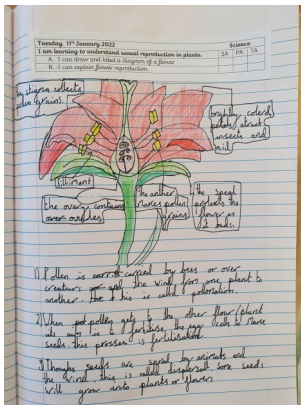 Tuesday 11th January 2022
Science
I am learning to understand sexual reproduction in plants.
SA PA TA
A. I can draw and label a diagram of a flower
B. I can explain flower reproduction
stigma collects
grains.
brightly colerd
petals
insects and
filament
the anther
makes pollen
grains
the overy contains
over ovules
the
protects the
flower as
it buds.
1) Pollen is carried by bees or over
creaturs the wind from one plant to
another this is called polonation.
2) When pollen gets to the other flower/plant
it to fertilise the egg cells to make
seeds this prosses is fertilisation
3) seeds are spread by animals and
the wind this is called dispersal some seeds
will grow into plants or flowers